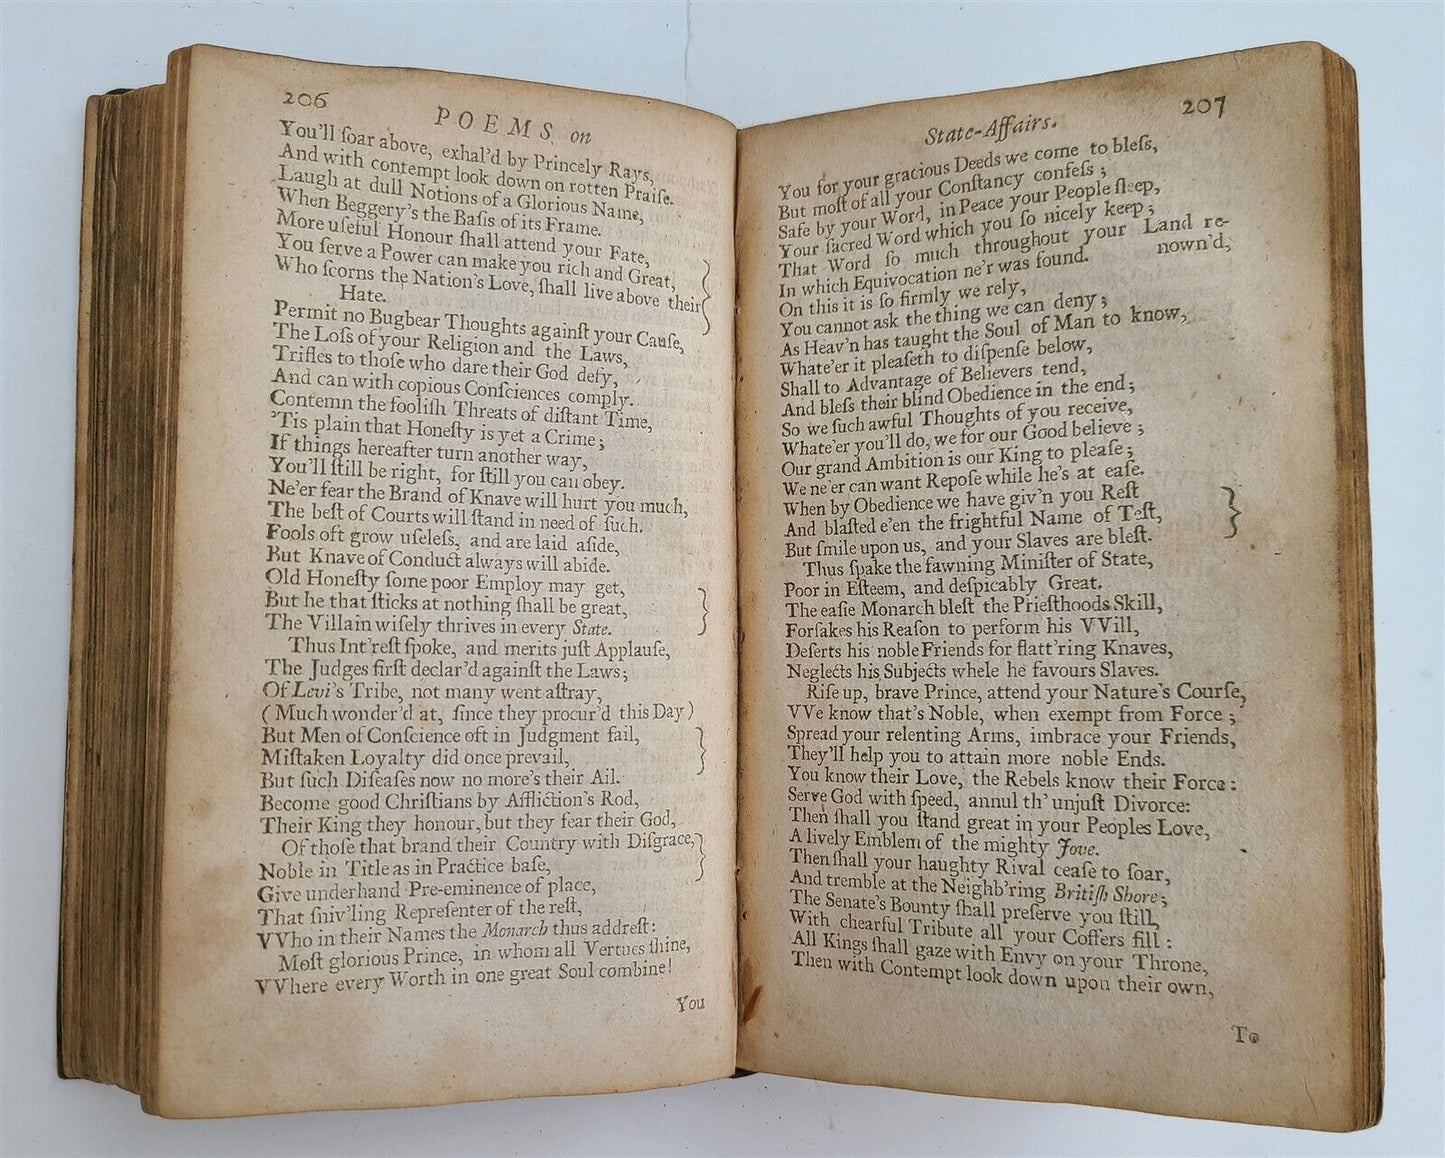 206
POEMS on
You'll ſoar above, exhal'd by Princely Rays,
And with contempt look down on rotten Praiſe.
Laugh at dull Notions of a Glorious Name,
When Beggery's the Baſis of its Frame.
More uſeful Honour ſhall attend your Fate,
You ſerve a Power can make you rich and Great,
Who ſcorns the Nation's Love, ſhall live above their
Hate.
Permit no Bugbear Thoughts againſt your Cauſe,
The Loſs of your Religion and the Laws,
Trifles to thoſe who dare their God defy,
And can with copious Conſciences comply.
Contemn the fooliſh Threats of diſtant Time,
'Tis plain that Honeſty is yet a Crime;
If things hereafter turn another way,
You'll ſtill be right, for ſtill you can obey.
Ne'er fear the Brand of Knave will hurt you much,
The beſt of Courts will ſtand in need of ſuch.
Fools oft grow uſeleſs, and are laid aſide,
But Knave of Conduct always will abide.
Old Honeſty ſome poor Employ may get,
But he that ſticks at nothing ſhall be great,
The Villain wiſely thrives in every State.
Thus Int'reſt ſpoke, and merits juſt Applauſe,
The Judges firſt declar'd againſt the Laws;
Of Levi's Tribe, not many went aſtray,
(Much wonder'd at, ſince they procur'd this Day)
But Men of Conſcience oft in Judgment fail,
Miſtaken Loyalty did once prevail,
But ſuch Diſeaſes now no more's their Ail.
Become good Chriſtians by Affliction's Rod,
Their King they honour, but they fear their God,
Of thoſe that brand their Country with Diſgrace,
Noble in Title as in Practice baſe,
Give underhand Pre-eminence of place,
That ſniv'ling Repreſenter of the reſt,
VVho in their Names the Monarch thus addreſt:
Moſt glorious Prince, in whom all Vertues ſhine,
VVhere every Worth in one great Soul combine!
You
207
State-Affairs.
You for your gracious Deeds we come to bleſs,
But moſt of all your Conſtancy confeſs;
Safe by your Word, in Peace your People ſleep,
Your ſacred Word which you ſo nicely keep;
That Word ſo much throughout your Land re-
nown'd,
In which Equivocation ne'r was found.
On this it is ſo firmly we rely,
You cannot ask the thing we can deny;
As Heav'n has taught the Soul of Man to know,
Whate'er it pleaſeth to diſpenſe below,
Shall to Advantage of Believers tend,
And bleſs their blind Obedience in the end;
So we ſuch awful Thoughts of you receive,
Whate'er you'll do, we for our Good believe;
Our grand Ambition is our King to pleaſe;
We ne'er can want Repoſe while he's at eaſe.
When by Obedience we have giv'n you Reſt
And blaſted e'en the frightful Name of Teſt,
But ſmile upon us, and your Slaves are bleſt.
Thus ſpake the fawning Miniſter of State,
Poor in Eſteem, and deſpicably Great.
The eaſie Monarch bleſt the Prieſthoods Skill,
Forſakes his Reaſon to perform his VVill,
Deſerts his noble Friends for flatt'ring Knaves,
Neglects his Subjects whele he favours Slaves.
Riſe up, brave Prince, attend your Nature's Courſe,
VVe know that's Noble, when exempt from Force;
Spread your relenting Arms, imbrace your Friends,
They'll help you to attain more noble Ends.
You know their Love, the Rebels know their Force:
Serve God with ſpeed, annul th' unjuſt Divorce:
Then ſhall you ſtand great in your Peoples Love,
A lively Emblem of the mighty Jove.
Then ſhall your haughty Rival ceaſe to ſoar,
And tremble at the Neighb'ring Britiſh Shore;
The Senate's Bounty ſhall preſerve you ſtill,
With chearful Tribute all your Coffers fill:
All Kings ſhall gaze with Envy on your Throne,
Then with Contempt look down upon their own,
To